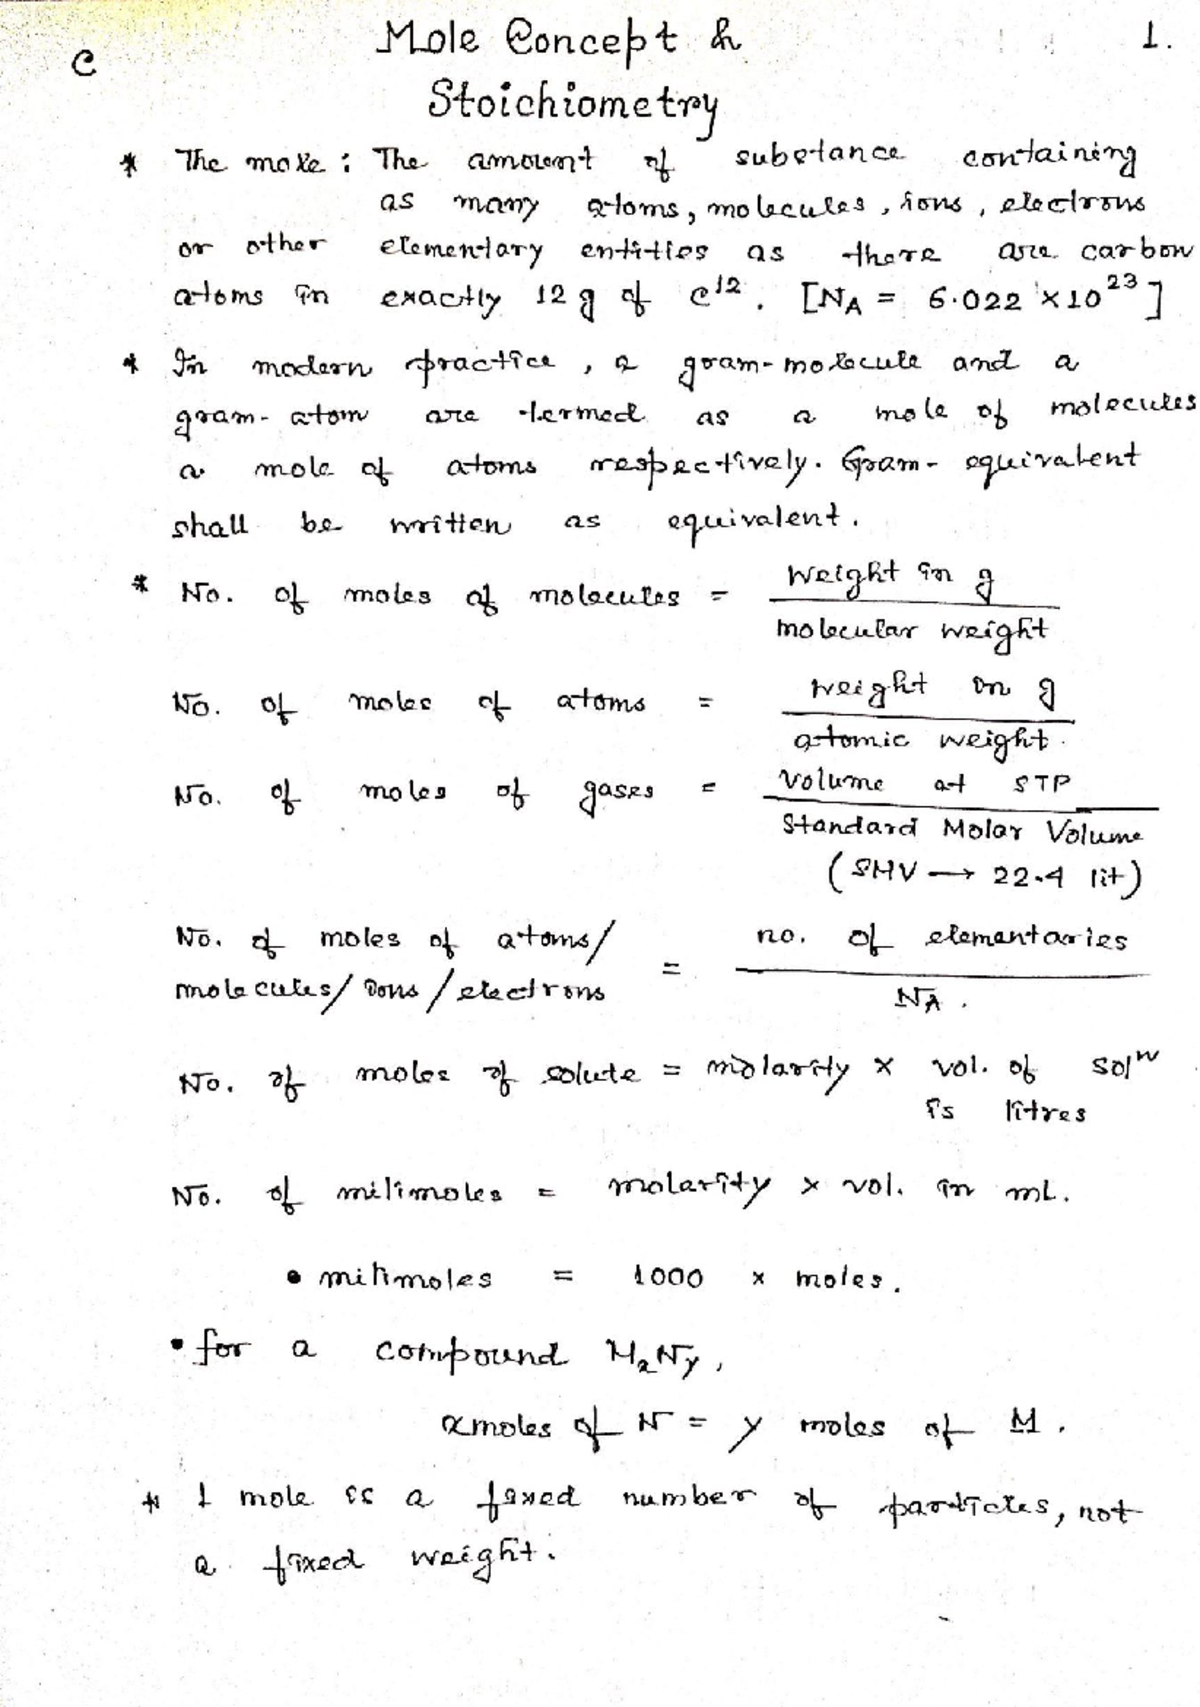 C
Mole Concept &
1.
Stoichiometry
* The mole : The amount of substance containing
as many atoms, molecules, ions, electrons
or other elementary entities as there are carbon
atoms in exactly 12 g of C¹². [N_A = 6.022 × 10²³]
* In modern practice, a gram-molecule and a
gram-atom are termed as a mole of molecules
a mole of atoms respectively. Gram-equivalent
shall be written as equivalent.
* No. of moles of molecules = Weight in g
molecular weight
No. of moles of atoms = weight in g
atomic weight.
No. of moles of gases = volume at STP
Standard Molar Volume
(SMV → 22.4 lit)
No. of moles of atoms/ no. of elementaries
molecules/ions/electrons = N_A.
No. of moles of solute = molarity × vol. of solⁿ
is litres
No. of milimoles = molarity × vol. in mL.
• milimoles = 1000 × moles.
• for a compound MₓNᵧ,
x moles of N = y moles of M.
* 1 mole is a fixed number of particles, not
a fixed weight.